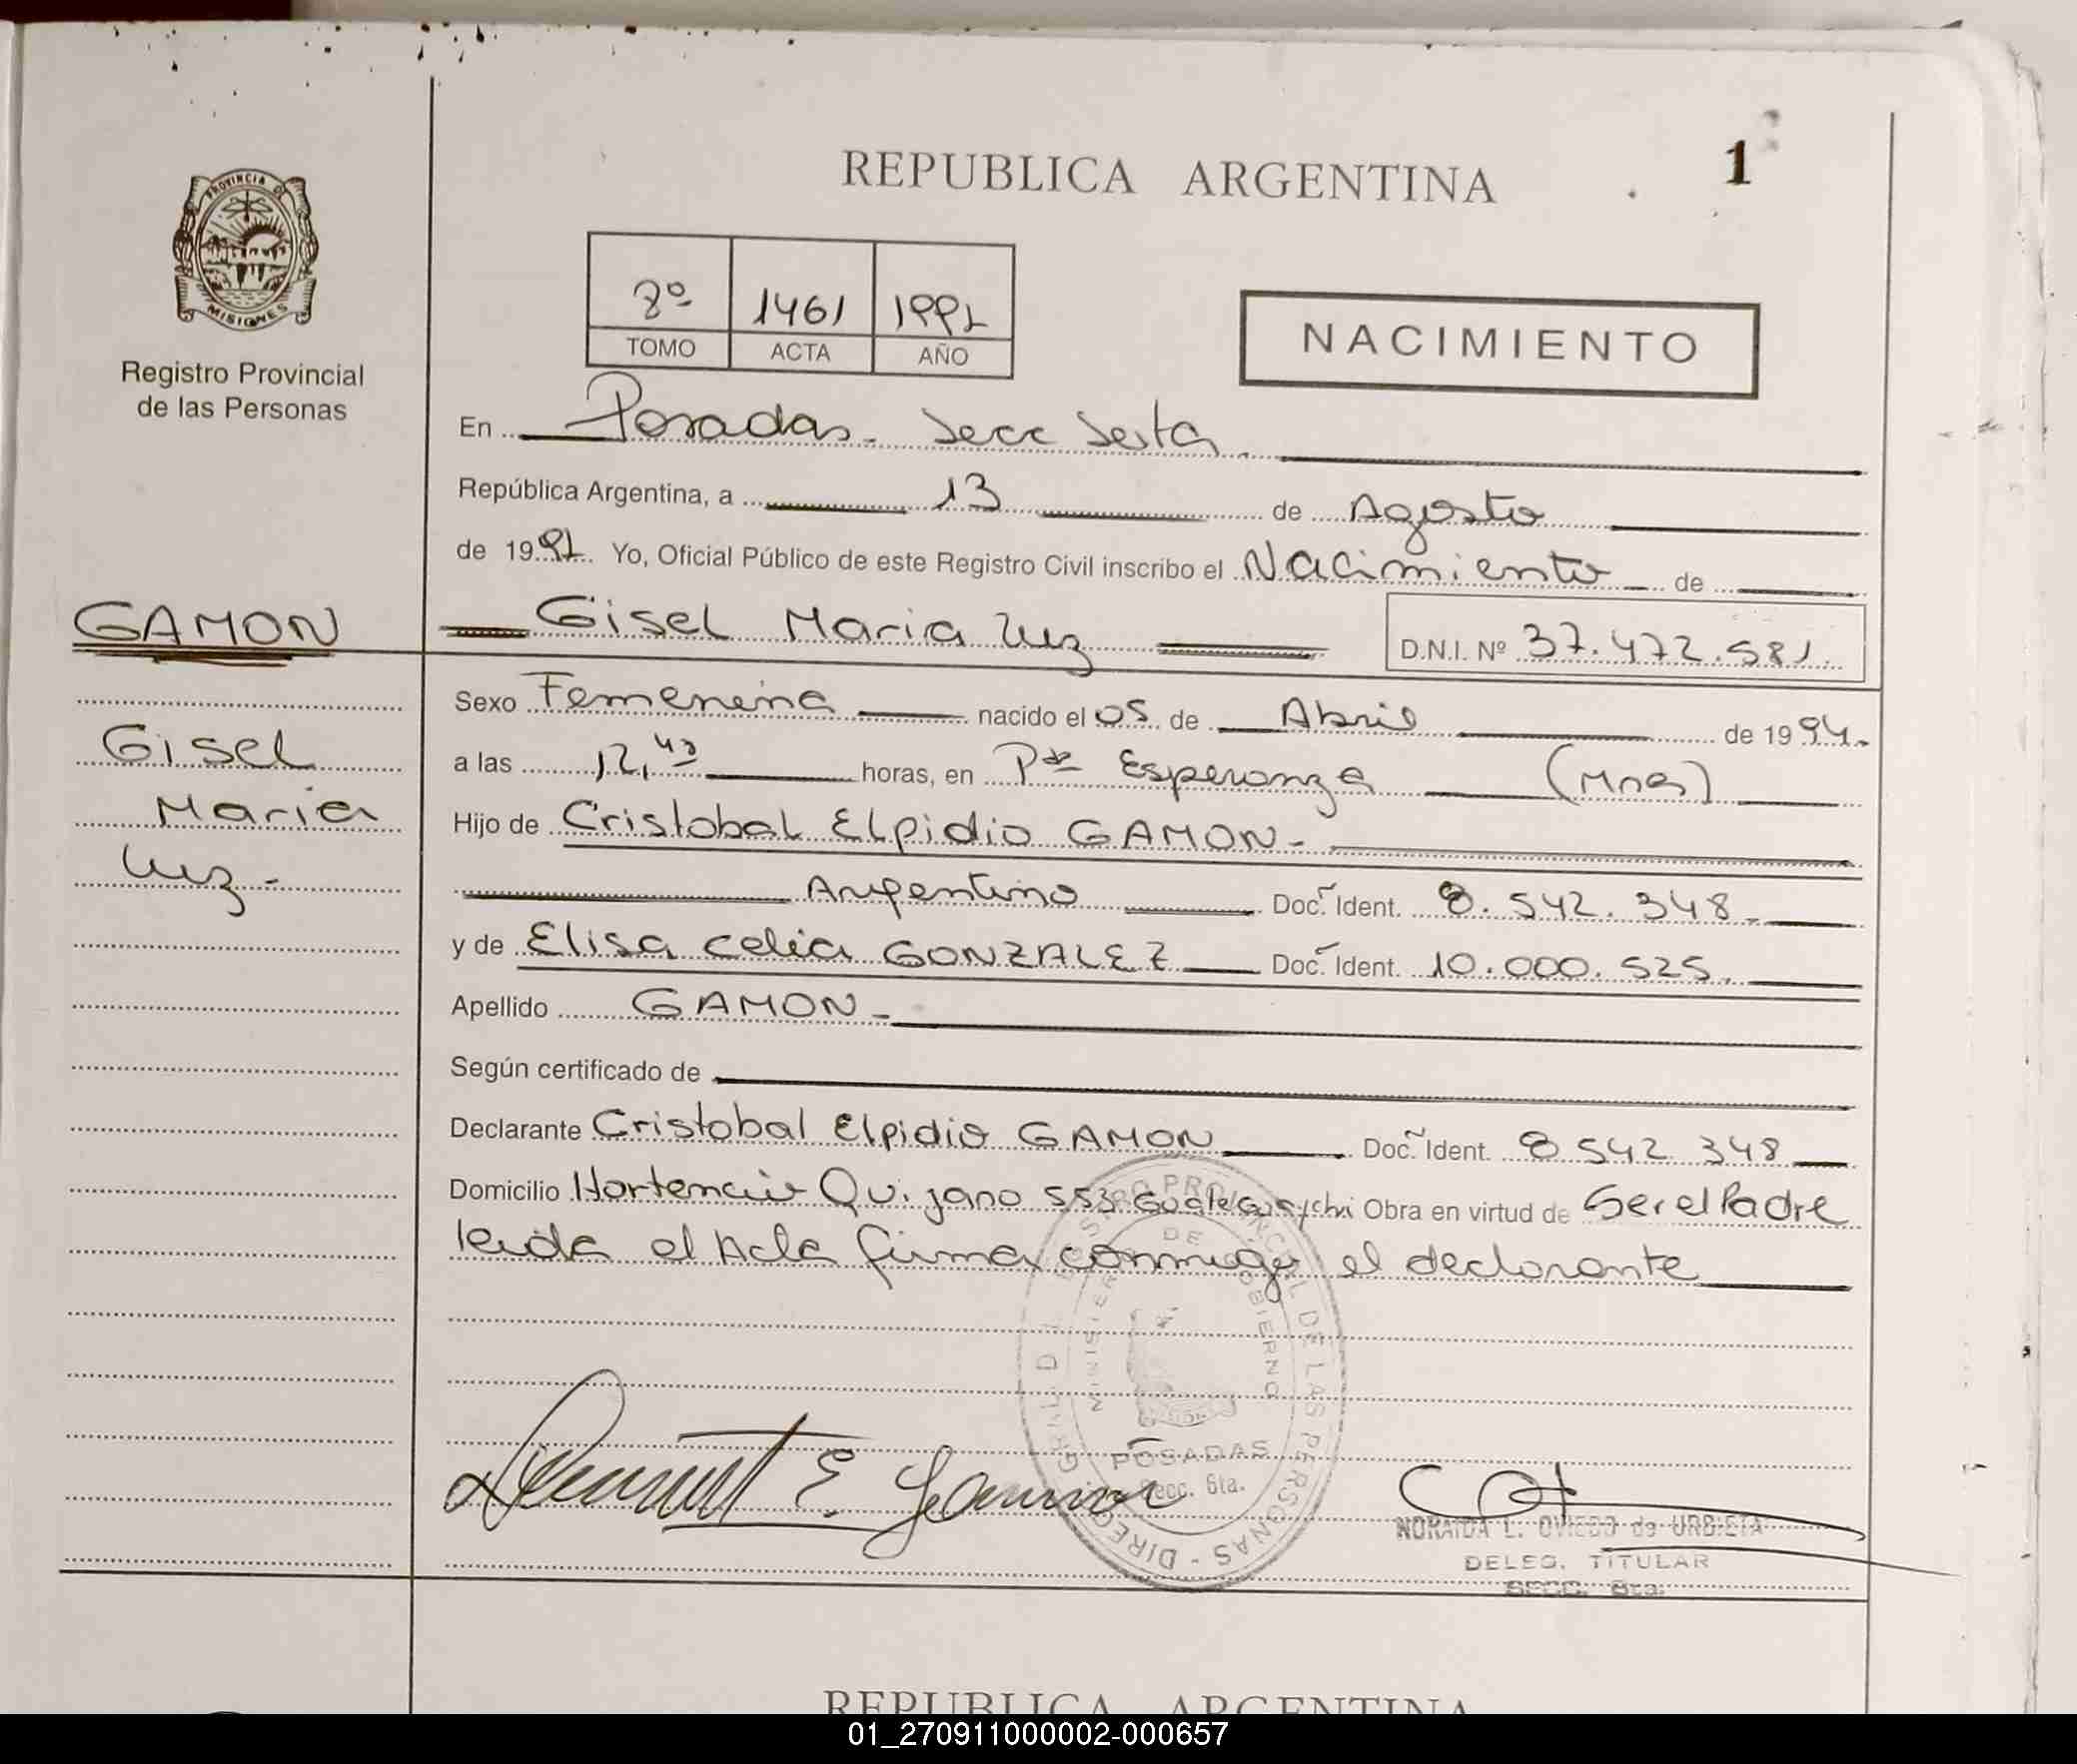 REPUBLICA ARGENTINA
1
PROVINCIA DE
MISIONES
Registro Provincial
de las Personas
1461
TOMO ACTA AÑO
NACIMIENTO
En Posadas - Secc Sexta
República Argentina, a 13 de Agosto
de 19 Yo, Oficial Público de este Registro Civil inscribo el Nacimiento de
GAMON
Gisel Maria Luz
D.N.I. Nº 37.472.581.
Gisel
Maria
Luz -
Sexo Femenina nacido el 05 de Abril de 1994.
a las 12,40 horas, en Pto Esperanza (Mnes)
Hijo de Cristobal Elpidio GAMON -
Argentino Doc. Ident. 8.542.348 -
y de Elisa Celia GONZALEZ Doc. Ident. 10.000.525.
Apellido GAMON -
Según certificado de
Declarante Cristobal Elpidio GAMON Doc. Ident. 8 542 348
Domicilio Hortencio Quijano 553 Gualeguaychi Obra en virtud de Ser el Padre
leida el Acta firma conmigo el declarante
REGISTRO PROVINCIAL DE LAS PERSONAS - DIRECC GRAL D
MINISTERIO DE GOBIERNO
POSADAS
Secc. 6ta.
NORAIDA L. OVIEDO de URBIETA
DELEG. TITULAR
SECC. 6ta.
REPUBLICA ARGENTINA
01_270911000002-000657